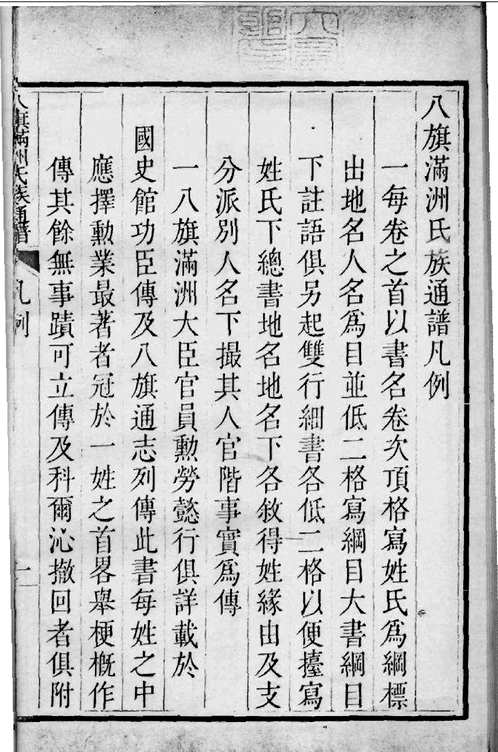 八旗滿洲氏族通譜凡例
一每卷之首以書名卷次頂格寫姓氏爲綱標
出地名人名爲目並低二格寫綱目大書綱目
下註語俱另起雙行細書各低二格以便擡寫
姓氏下總書地名地名下各敘得姓緣由及支
分派別人名下撮其人官階事實爲傳
一八旗滿洲大臣官員勲勞懿行俱詳載於
國史館功臣傳及八旗通志列傳此書每姓之中
應擇勲業最著者冠於一姓之首畧舉梗槪作
傳其餘無事蹟可立傳及科爾沁撤回者俱附
八旗滿洲氏族通譜
凡例
一